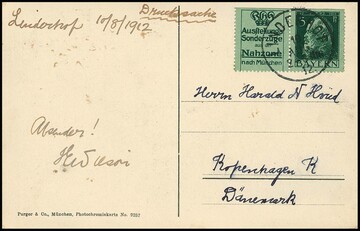 Linderhof 10/8/1912
Drucksache
Ausstellungs
Sonderzüge
aus der
Nahzone
nach München
5
BAYERN
Herrn Harald N
Absender!
Kopenhagen K
Dänemark
Purger & Co., München, Photochromiekarte No.